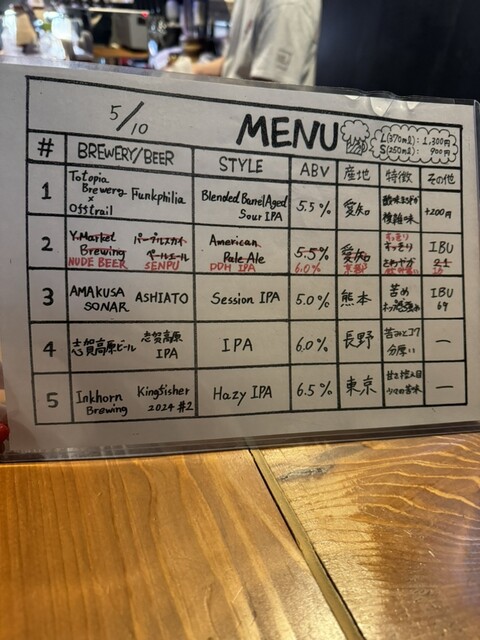 5/10
MENU
L(370ml): 1,300円
S(250ml): 900円
# BREWERY/BEER STYLE ABV 産地 特徴 その他
1 Totopia Brewery × Offtrail Funkphilia Blended Barrel Aged Sour IPA 5.5% 愛知 複雑味 +200円
2 Y.Market Brewing パープルスカイペールエール American Pale Ale 5.5% 愛知 すっきり IBU 21
NUDE BEER SENPU DDH IPA 6.0% 京都 すっきり
3 AMAKUSA SONAR ASHIATO Session IPA 5.0% 熊本 苦め IBU 69
4 志賀高原ビール 志賀高原IPA IPA 6.0% 長野 苦みとコク分厚い —
5 Inkhorn Brewing Kingfisher 2024 #2 Hazy IPA 6.5% 東京 甘さ控え目 —